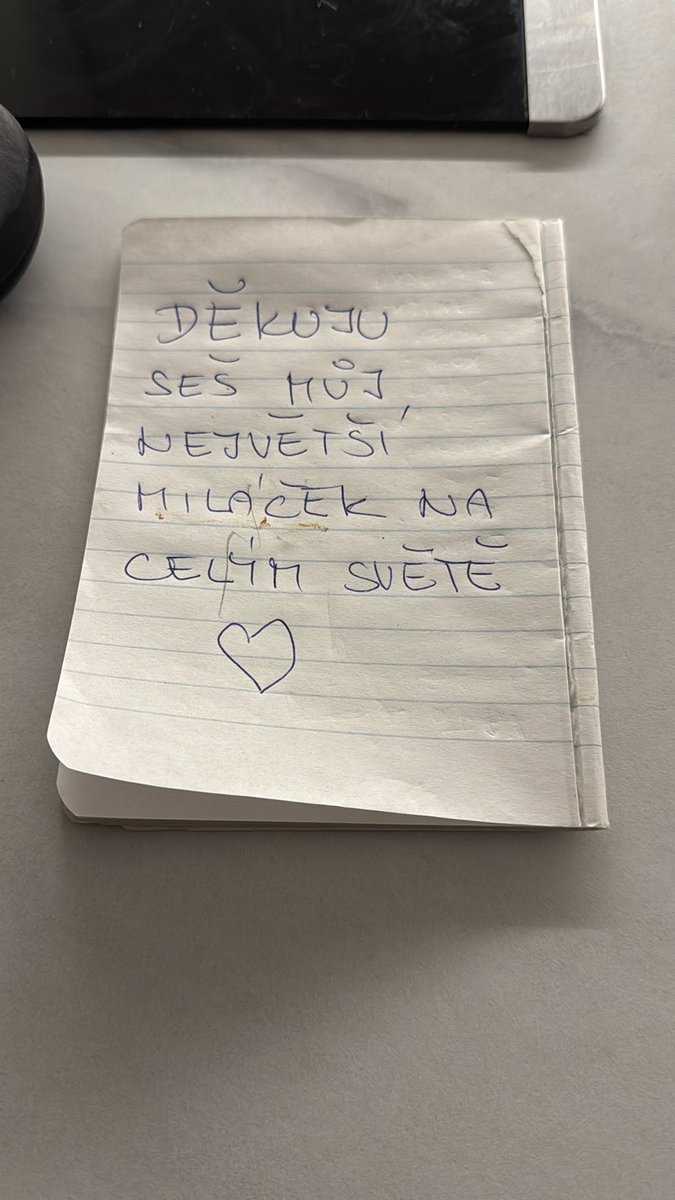 DĚKUJU
SEŠ MŮJ
NEJVĚTŠÍ
MILÁČEK NA
CELÝM SVĚTĚ